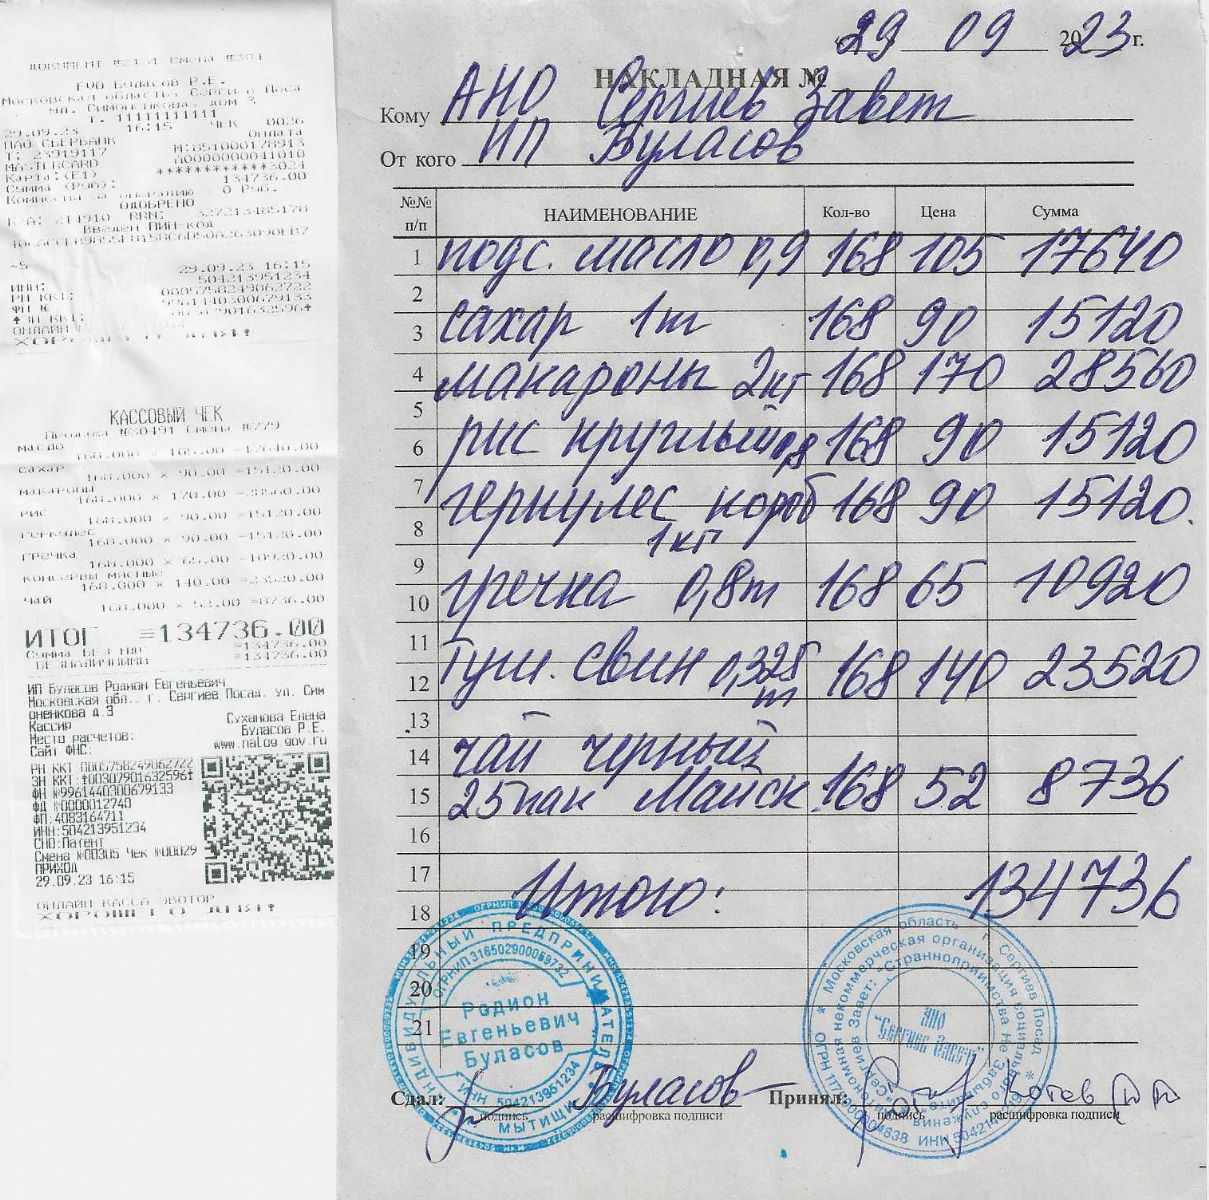 ИП Буласов Р.Е.
Московская область, Сергиев Поса
ул. Симоненкова, дом 3
Т. 11111111111
29.09.23 16:15 ЧЕК 0026
ПАО СБЕРБАНК Оплата
Т: 23919117 М:851000178913
MASTERCARD A0000000041010
Карта:(E1) ************3024
Сумма (Руб): 134736.00
Комиссия за операцию 0 Руб.
ОДОБРЕНО
К/А: 214910 RRN: 327213485178
Введен ПИН-код
29.09.23 16:15
ИНН: 504213951234
РН ККТ: 0005758249062722
ФН № 9961440300679133
ЗН ККТ: 00307901632596
ХОРОШЕГО ДНЯ!
КАССОВЫЙ ЧЕК
Продажа №30491 Смена №779
масло
168.000 × 105.00 =17640.00
сахар
168.000 × 90.00 =15120.00
макароны
168.000 × 170.00 =28560.00
рис
168.000 × 90.00 =15120.00
геркулес
168.000 × 90.00 =15120.00
гречка
168.000 × 65.00 =10920.00
консервы мясные
168.000 × 140.00 =23520.00
чай
168.000 × 52.00 =8736.00
ИТОГ =134736.00
Сумма БЕЗ НДС =134736.00
БЕЗНАЛИЧНЫМИ =134736.00
ИП Буласов Родион Евгеньевич
Московская обл., г. Сергиев Посад, ул. Сим
оненкова д.3
Кассир Суханова Елена
Место расчетов: Буласов Р.Е.
Сайт ФНС: www.nalog.gov.ru
РН ККТ:0005758249062722
ЗН ККТ:↑00307901632596↑
ФН №9961440300679133
ФД №0000012740
ФП:4083164711
ИНН:504213951234
СНО:Патент
Смена №00305 Чек №00029
ПРИХОД
29.09.23 16:15
ОНЛАЙН КАССА ЭВОТОР
ХОРОШЕГО ДНЯ!
29 09 2023г.
НАКЛАДНАЯ №
Кому АНО Сергиев Завет
От кого ИП Буласов
№№ п/п НАИМЕНОВАНИЕ Кол-во Цена Сумма
1 подс. масло 0,9 168 105 17640
2
3 сахар 1т 168 90 15120
4 макароны 2кг 168 170 28560
5
6 рис круглый 0,8 168 90 15120
7 геркулес короб 168 90 15120.
8 1кг
9
10 гречка 0,8т 168 65 10920
11
12 туш. свин 0,325 т 168 140 23520
13
14 чай черный
15 25пак Майск 168 52 8736
16
17
18 Итого: 134736
19
20
21
ИНДИВИДУАЛЬНЫЙ ПРЕДПРИНИМАТЕЛЬ
ОГРНИП 316502900069732
Родион
Евгеньевич
Буласов
ИНН 504213951234
МЫТИЩИ
Московская область г. Сергиев Посад
Автономная некоммерческая организация социального служения
"Сергиев Завет: "Странноприимства Не Забывайте"
АНО
"Сергиев Завет"
Сдал: Буласов Принял: Котев
подпись расшифровка подписи подпись расшифровка подписи